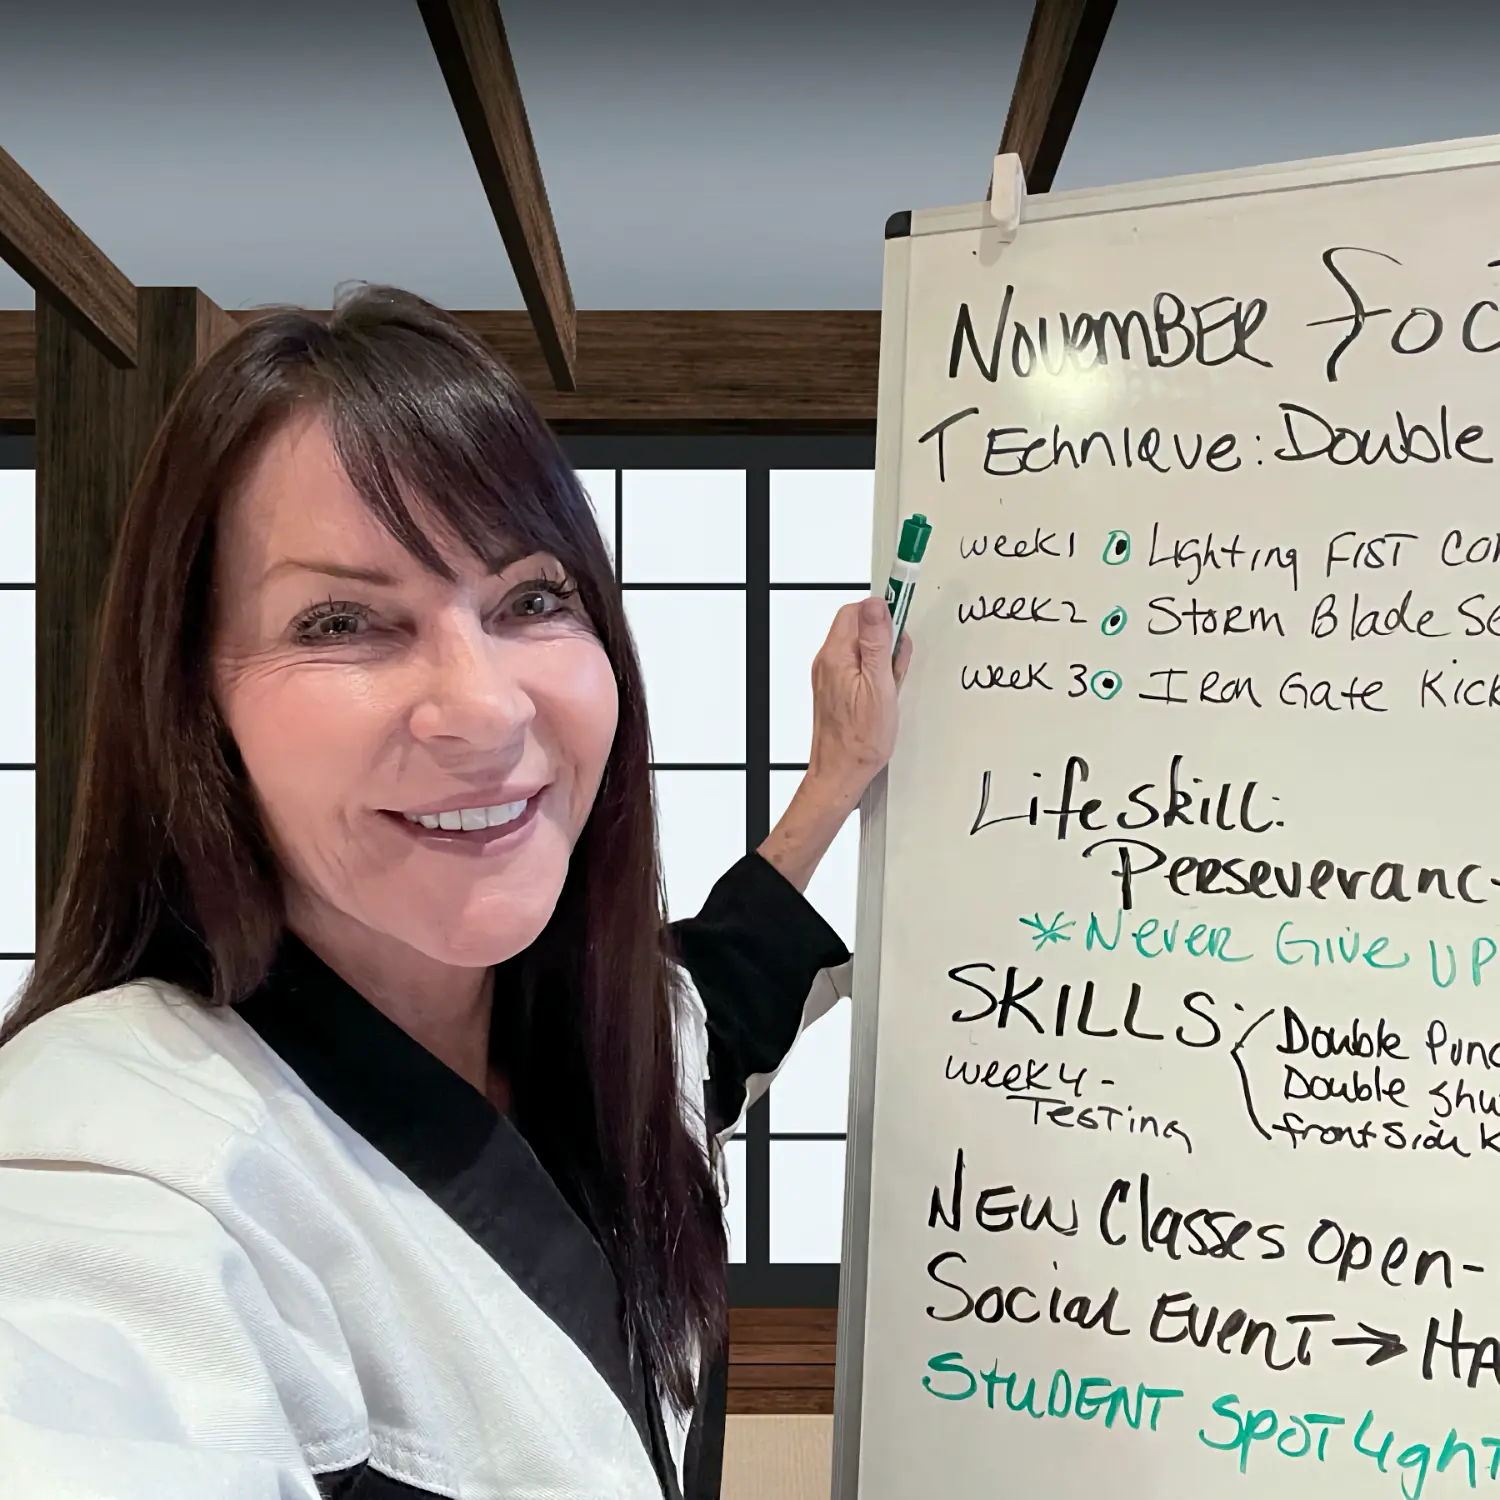 NovemBER foc
TEchnique: Double
week 1 Lighting FIST CO
week 2 Storm Blade Se
week 3 IRon Gate Kick
Life skill:
Perseveranc
*Never Give UP
SKILLS:
Double Punc
Double shu
front Side K
week 4 -
Testing
New Classes Open-
Social Event → HA
STUDENT SPOTLight